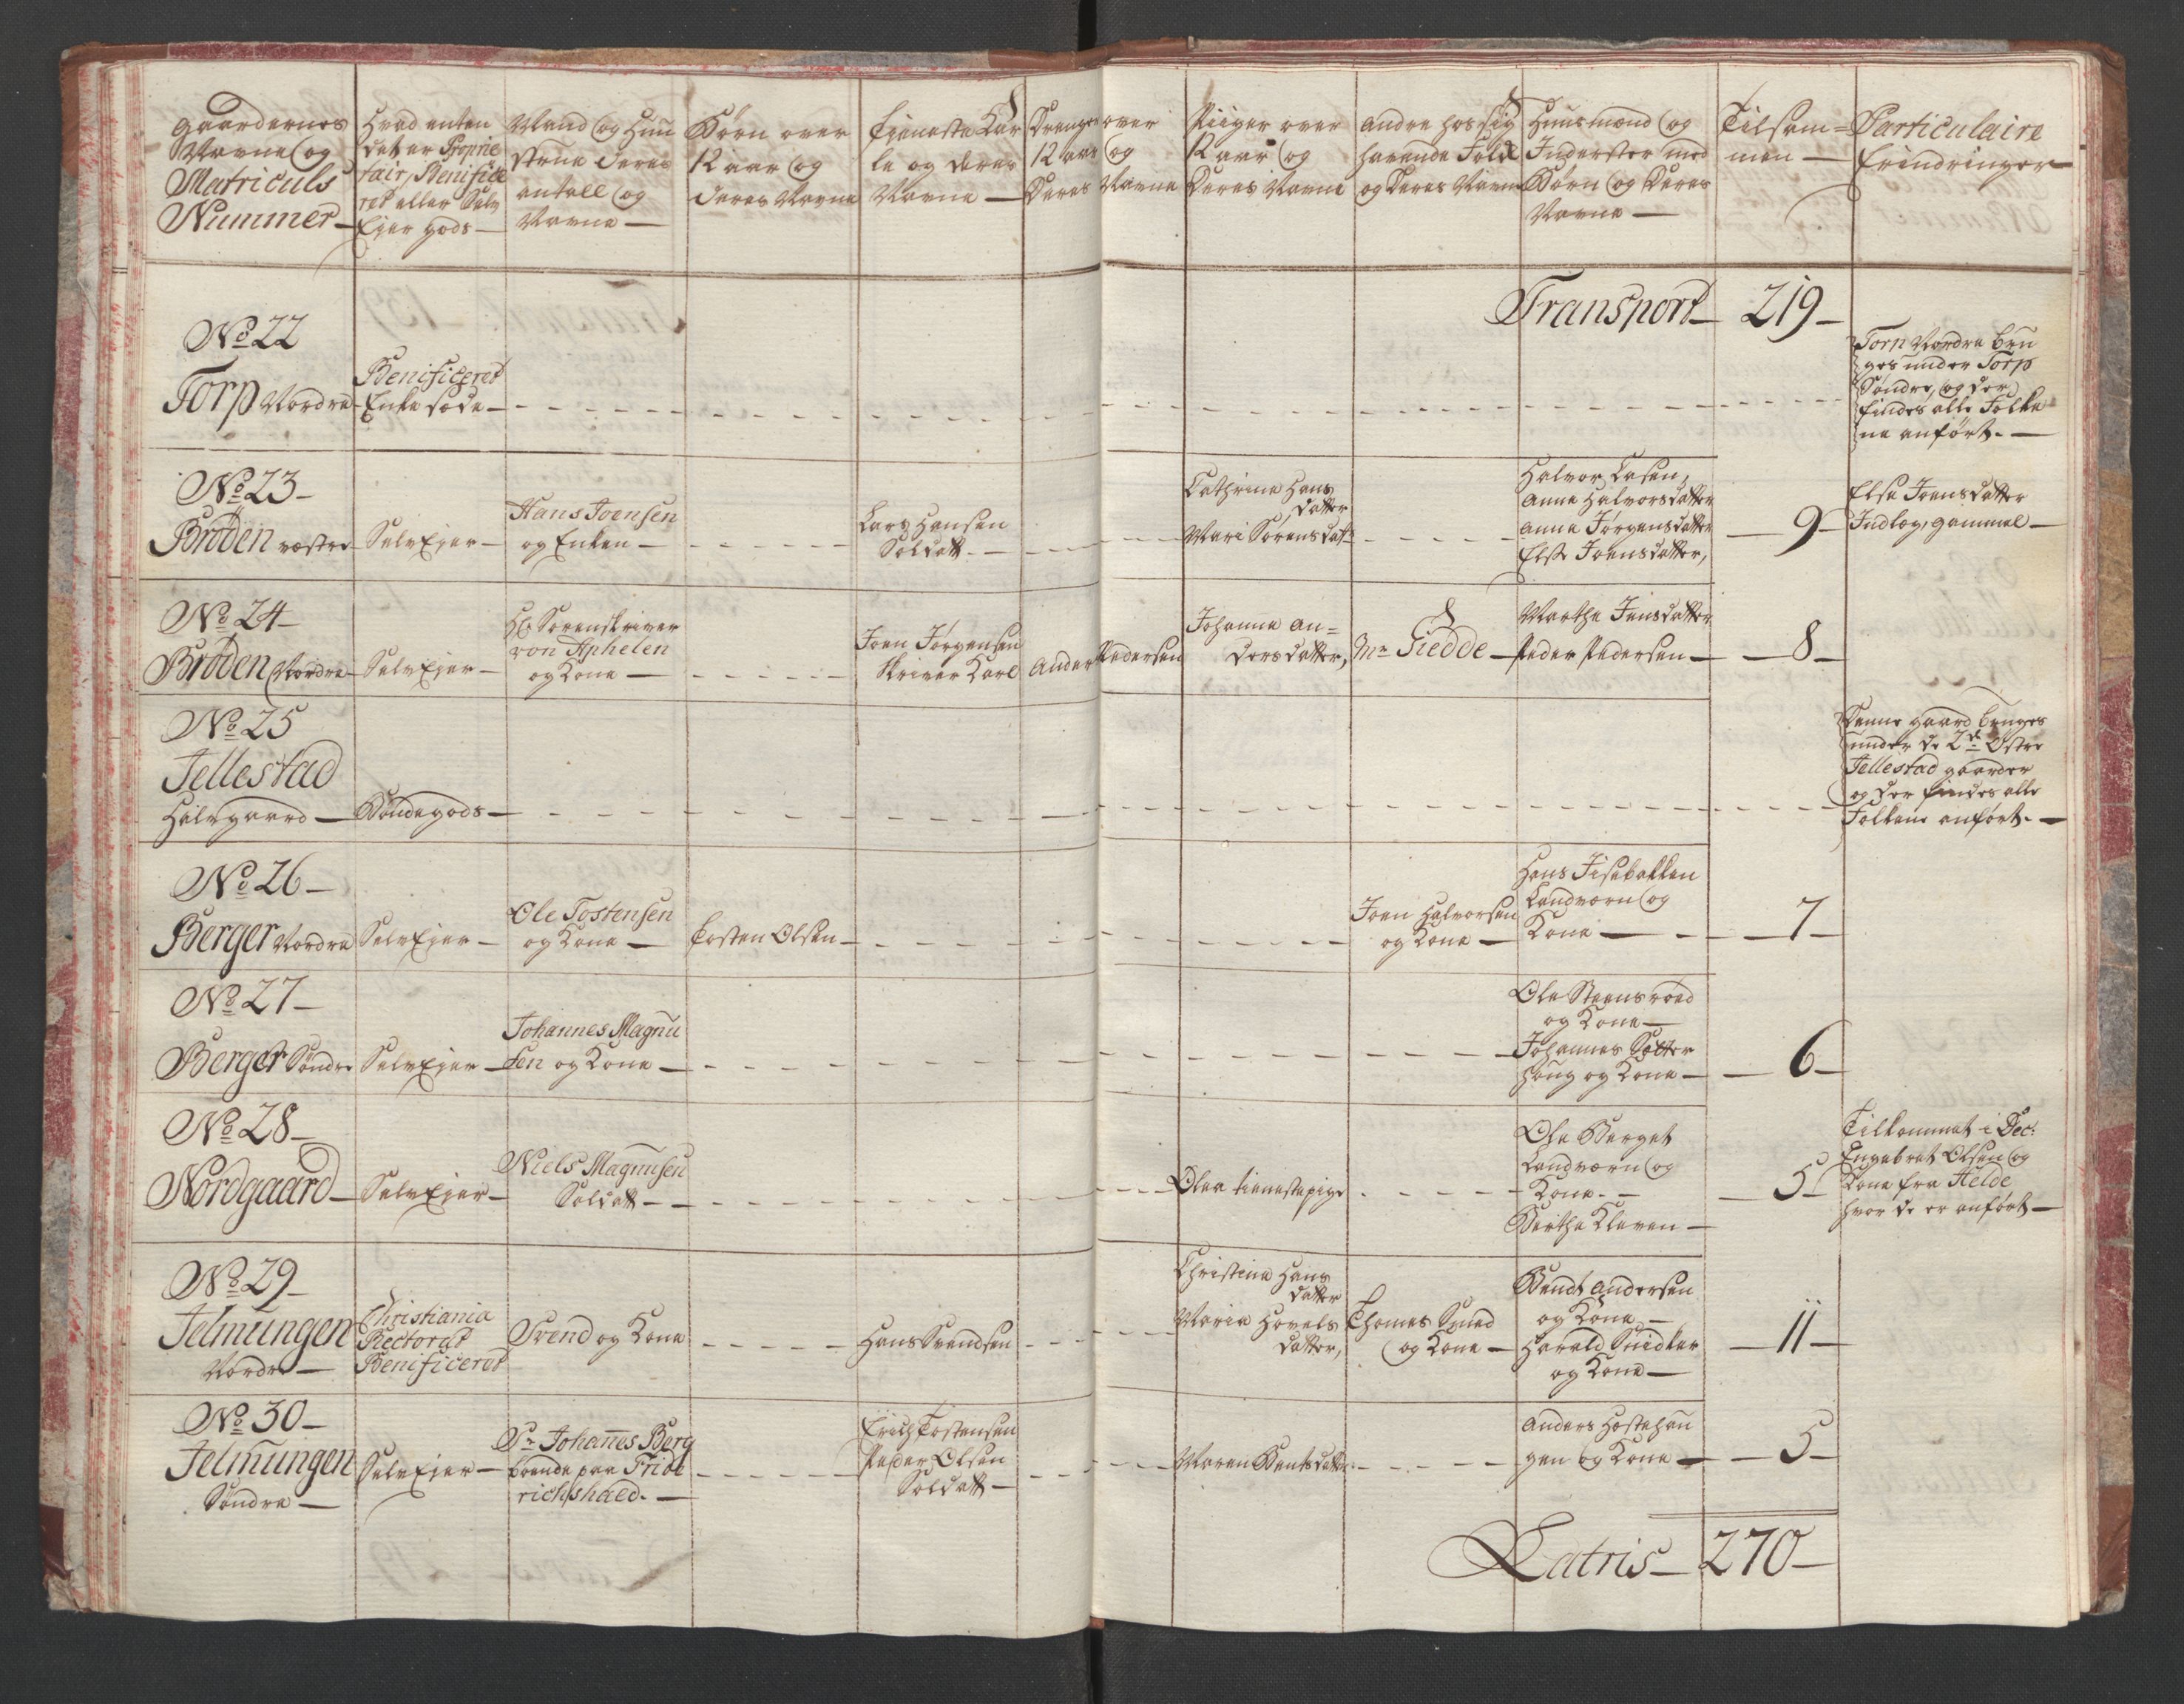 Gaardernes
Navne og
Matriculs
Nummer
Hvad enten
det er Proprie
tair, Benifice
ret eller Selv
Ejer gods
Mand og Huu
strue deres
antall og
Navne
Børn over
12 aar og
deres Navne
Tieneste Kar
le og deres
Navne
Drenge over
12 aar og
Deres Navne
Piiger over
12 aar og
Deres Navne
Andre hos sig
havende Folk
og Deres Navne
Huusmænd og
Inderster med
Børn og Deres
Navne
Tilsam=
men
Particulaire
Erindringer
Transport 219
No 22
Torp Nordre
Beneficeret
Enke sæde
Torp Nordre bru
ges under Torp
Søndre, og der
findes alle Folke
ne anført.
No 23
Brøden vestre
SelvEjer
Hans Joensen
og Enken
Lars Hansen
Soldatt
Cathrine Hans
datter
Mari Sørensdatt
Halvor
Anne Halvorsdatter
Anne Jørgensdatter
Else Joensdatter,
9
Else Joensdatter
Indlæg, gammel
No 24
Brøden Nordre
SelvEjer
Hr Sorenskriver
von Aphelen
og Kone
Joen Jørgensen
Skriver Karl
Anders Pedersen
Johanne An=
dersdatter,
Mr Tiedde
Marthe Jensdatter
Peder Pedersen
8
No 25
Jellestad
Halvgaard
Bøndegods
Denne gaard bruges
under de 2de Østre
Jellestad gaarder
og der findes alle
Folkene anført.
No 26
Berger Nordre
SelvEjer
Ole Tostensen
og Kone
Tosten Olsen
Joen Halvorsen
og Kone
Hans Fisebakken
Landværn og
Kone
7
No 27
Berger Søndre
SelvEjer
Johannes Magnu
sen og Kone
Ole Steensroed
og Kone
Johannes Sætter
houg og Kone
6
No 28
Nordgaard
SelvEjer
Niels Magnusen
Soldatt
Olea tienestepige
Ole Berget
Landværn og
Kone.
Berthe Kleven
5
Tilkommet i Dec:
Engebret Olsen og
Kone fra Helde
hvor de er anført
No 29
Jelmungen
Nordre
Christiania
Rectorat
Benificeret
Svend og Kone
Hans Svendsen
Christine Hans
datter
Maria Hovels
datter,
Thomas Smed
og Kone
Bendt Andersen
og Kone
Harald Snidker
og Kone
11
No 30
Jelmungen
Søndre
SelvEjer
Sr Johannes Berg
boende paa Fride
richshald.
Erich Tostensen
Peder Olsen
Soldatt
Maren Bentsdatter
Anders Hestehau
gen og Kone
5
Latris 270